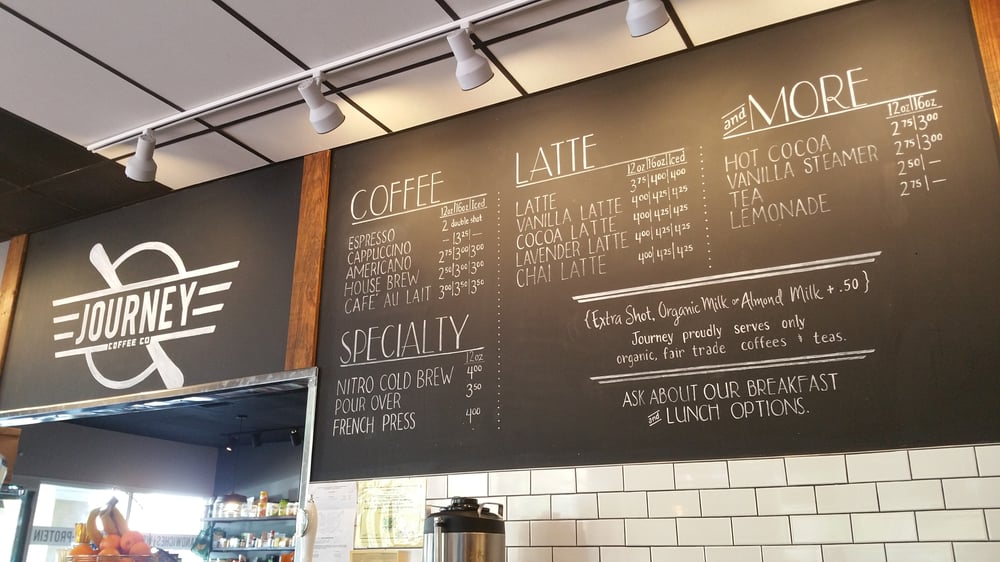 JOURNEY
COFFEE CO
COFFEE
12oz|16oz|Iced
ESPRESSO 2 double shot
CAPPUCCINO – |3.25| –
AMERICANO 2.75|3.00|3.00
HOUSE BREW 2.50|3.00|3.00
CAFE' AU LAIT 3.00|3.50|3.50
SPECIALTY
12oz
NITRO COLD BREW 4.00
POUR OVER 3.50
FRENCH PRESS 4.00
LATTE
12oz|16oz|Iced
LATTE 3.75|4.00|4.00
VANILLA LATTE 4.00|4.25|4.25
COCOA LATTE 4.00|4.25|4.25
LAVENDER LATTE 4.00|4.25|4.25
CHAI LATTE 4.00|4.25|4.25
and MORE
12oz|16oz
HOT COCOA 2.75|3.00
VANILLA STEAMER 2.75|3.00
TEA 2.50| –
LEMONADE 2.75| –
{Extra Shot, Organic Milk or Almond Milk + .50}
Journey proudly serves only
organic, fair trade coffees & teas.
ASK ABOUT OUR BREAKFAST
and LUNCH OPTIONS.
PROTEIN